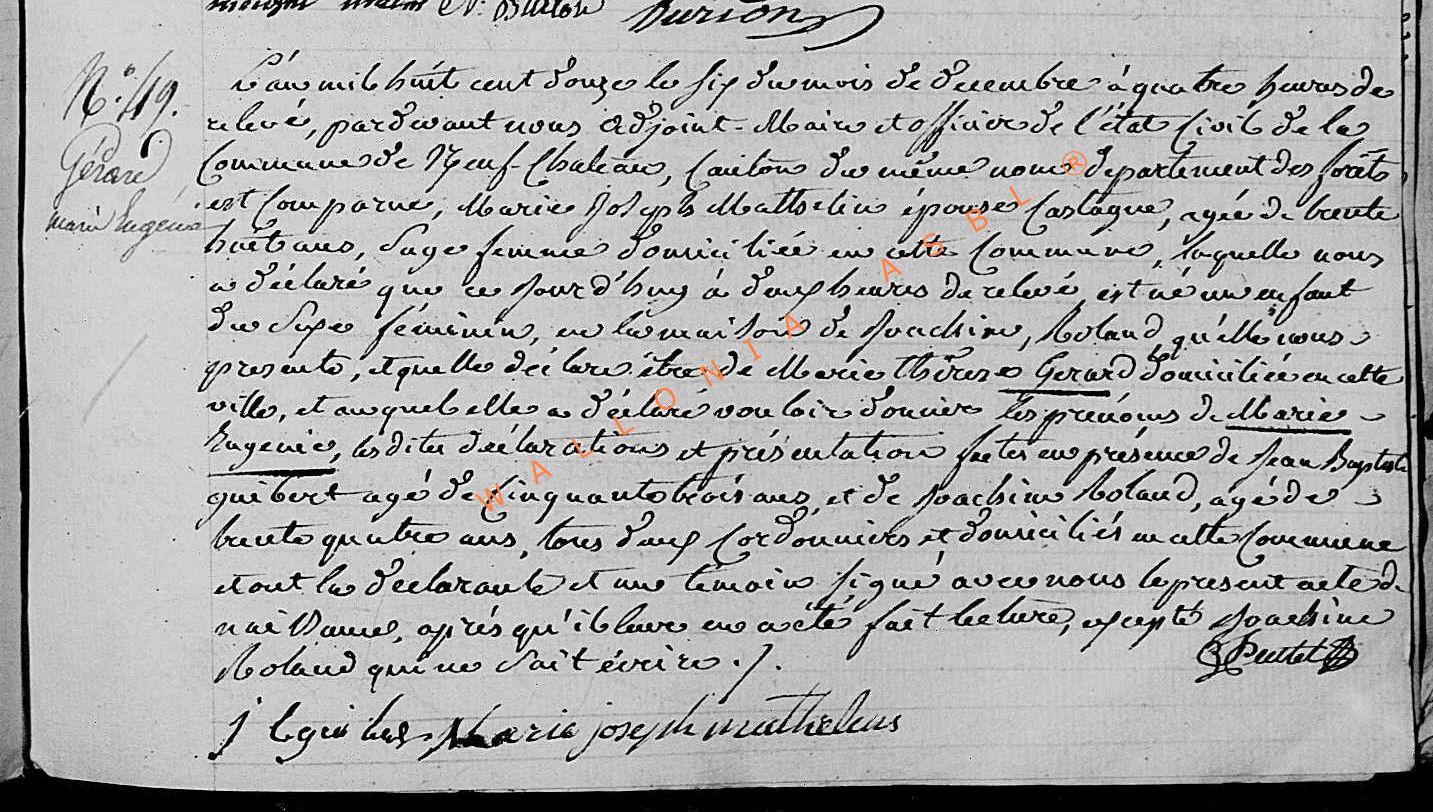 Burton
N.° 49.
Gérard
marie Eugénie
L'an mil huit cent douze le six du mois de decembre à quatre heures de
relevé, pardevant nous adjoint-Maire et officier de l'état Civil de la
Commune de Neuf-Chateau, Canton du même nom département des forêts
est Comparue, Marie Joseph Matthelin épouse Castagne, agée de trente
huit ans, Sage femme domiciliée en cette Commune, laquelle nous
a déclaré que ce jourd'huy à deux heures de relevé, est né un enfant
du Sexe féminin, en la maison de Joachim, Roland, qu'elle nous
presente, et quelle déclare être de Marie thérese Gerard domiciliée en cette
ville, et auquel elle a déclaré vouloir donner les prénoms de Marie
Eugenie, lesdites déclarations et présentation faites en présence de Jean Baptiste
guibert agé de Cinquante trois ans, et de Joachim Roland, agé de
trente quatre ans, tous deux Cordonniers et domiciliés en cette Commune
et ont la déclarante et un témoin signé avec nous le présent acte de
naissance, après qu'il leur en a été fait lecture, excepté Joachim
Roland qui ne Sait écrire ./.
j b guibert Maria joseph mathelens
WALLONIA ASBL ®